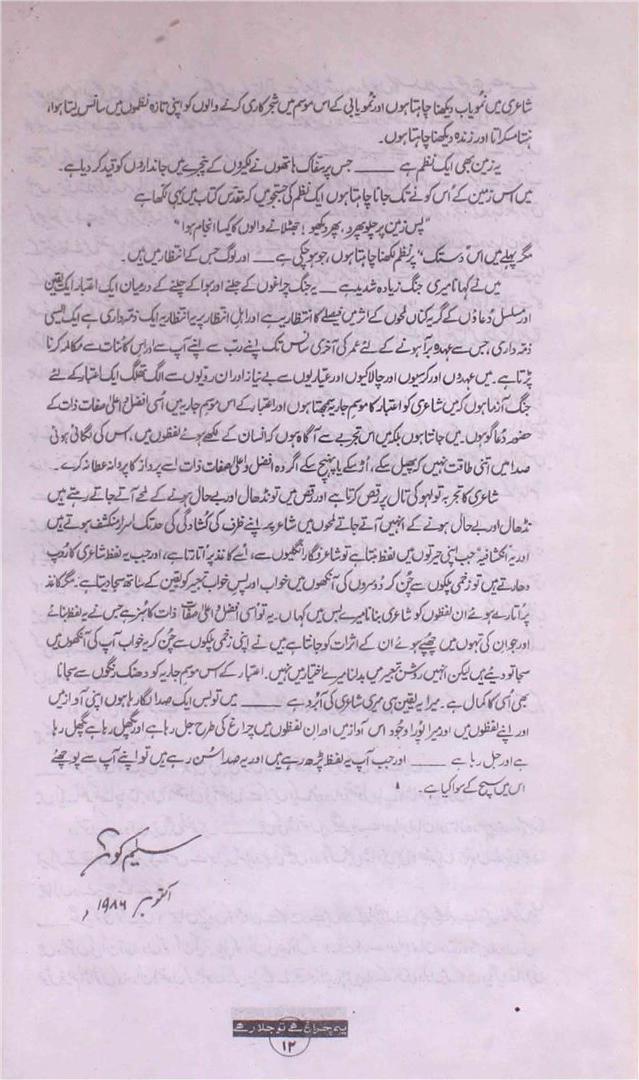 شاعری میں نمو یاب دیکھنا چاہتا ہوں اور نمو یابی کے اس موسم میں شجرکاری کرنے والوں کو اپنی تازہ نظموں میں سانس لیتا ہوا،
ہنستا مسکراتا اور زندہ دیکھنا چاہتا ہوں۔
یہ زمین بھی ایک نظم ہے ــــــ جس پر سفاک ہاتھوں نے لکیروں کے پنجرے میں جانداروں کو قید کر دیا ہے۔
میں اس زمین کے اُس کونے تک جانا چاہتا ہوں ایک نظم کی جستجو میں کہ مقدس کتاب میں یہی لکھا ہے
"پس زمین پر چلو پھرو، پھر دیکھو! جھٹلانے والوں کا کیسا انجام ہوا"
مگر پہلے میں اس "دستک" پر نظم لکھنا چاہتا ہوں، جو ہو چکی ہے ــــ اور لوگ جس کے انتظار میں ہیں۔
میں نے کہا نا میری جنگ زیادہ شدید ہے ــــ یہ جنگ چراغوں کے جلنے اور ہوا کے چلنے کے درمیان ایک اعتبار ایک یقین
اور مسلسل دُعاؤں کے گریہ کناں لمحوں کے اثر میں فیصلے کا انتظار یہ ہے اور اہلِ انتظار پر یہ انتظار یہ ایک ذمہ داری ہے ایک ایسی
ذمہ داری، جس سے عہدہ برآ ہونے کے لئے عمر کی آخری سانس تک اپنے رب سے اپنے آپ سے اور اس کائنات سے مکالمہ کرنا
پڑتا ہے۔ میں عہدوں اور کرسیوں اور چالاکیوں اور عیاریوں سے بے نیاز اور ان رویوں سے الگ تھلگ ایک اعتبار کے لئے
جنگ آزما ہوں کہ میں شاعری کو اعتبار کا موسمِ جاریہ سمجھتا ہوں اور اعتبار کے اس موسمِ جاریہ میں اُسی افضل و اعلیٰ صفات ذات کے
حضور دُعا گو ہوں۔ میں جانتا ہوں بلکہ میں اس تجربے سے آگاہ ہوں کہ انسان کے لکھے ہوئے لفظوں میں، اس کی لگائی ہوئی
صدا میں اتنی طاقت نہیں کہ پھیل سکے، اُڑ سکے یا پہنچ سکے اگر وہ افضل و اعلیٰ صفات ذات اسے پرواز کا پروانہ عطا نہ کرے۔
شاعری کا تجربہ تو لہو کی تال پر رقص کرتا ہے اور رقص میں تو نڈھال اور بے حال ہونے کے لمحے آتے جاتے رہتے ہیں
نڈھال اور بے حال ہونے کے انہیں آتے جاتے لمحوں میں شاعر پر اپنے ظرف کی کشادگی کی حد تک اسرار منکشف ہوتے ہیں
اور یہ انکشافیہ جب اپنی حیرتوں میں لفظ بنتا ہے تو شاعر فگار انگلیوں سے، اُسے کاغذ پر اُتارتا ہے، اور جب یہ لفظ شاعری کا رُوپ
دھارتے ہیں تو زخمی پلکوں سے چُن کر دُوسروں کی آنکھوں میں خواب اور پسِ خواب تعبیر کو یقین کے ساتھ سجا دیتا ہے۔ مگر کاغذ
پر اُتارے ہوئے ان لفظوں کو شاعری بنانا میرے بس میں کہاں۔ یہ تو اُسی افضل و اعلیٰ صفات ذات کا ہنر ہے جس نے یہ لفظ بنائے
اور جو ان کی تہوں میں چھپے ہوئے ان کے اثرات کو جانتا ہے میں نے اپنی زخمی پلکوں سے چُن کر یہ خواب آپ کی آنکھوں میں
سجا تو دیئے ہیں لیکن انہیں روشن تعبیر میں بدلنا میرے اختیار میں نہیں۔ اعتبار کے اس موسمِ جاریہ کو دھنک رنگوں سے سجانا
بھی اُسی کا کمال ہے۔ میرا یہ یقین ہی میری شاعری کی آبرو ہے ــــــ میں تو بس ایک صدا لگا رہا ہوں اپنی آواز میں
اور اپنے لفظوں میں اور میرا پُورا وجُود اس آواز میں اور ان لفظوں میں چراغ کی طرح جل رہا ہے اور پگھل رہا ہے پگھل رہا
ہے اور جل رہا ہے ــــــ اور جب آپ یہ لفظ پڑھ رہے ہیں اور یہ صدا سُن رہے ہیں تو اپنے آپ سے پوچھئے
اس میں سچ کے سوا کیا ہے۔
سلیم کوثر
اکتوبر ۱۹۸۶ء
یہ چراغ ہے تو جلا رہے
۱۲